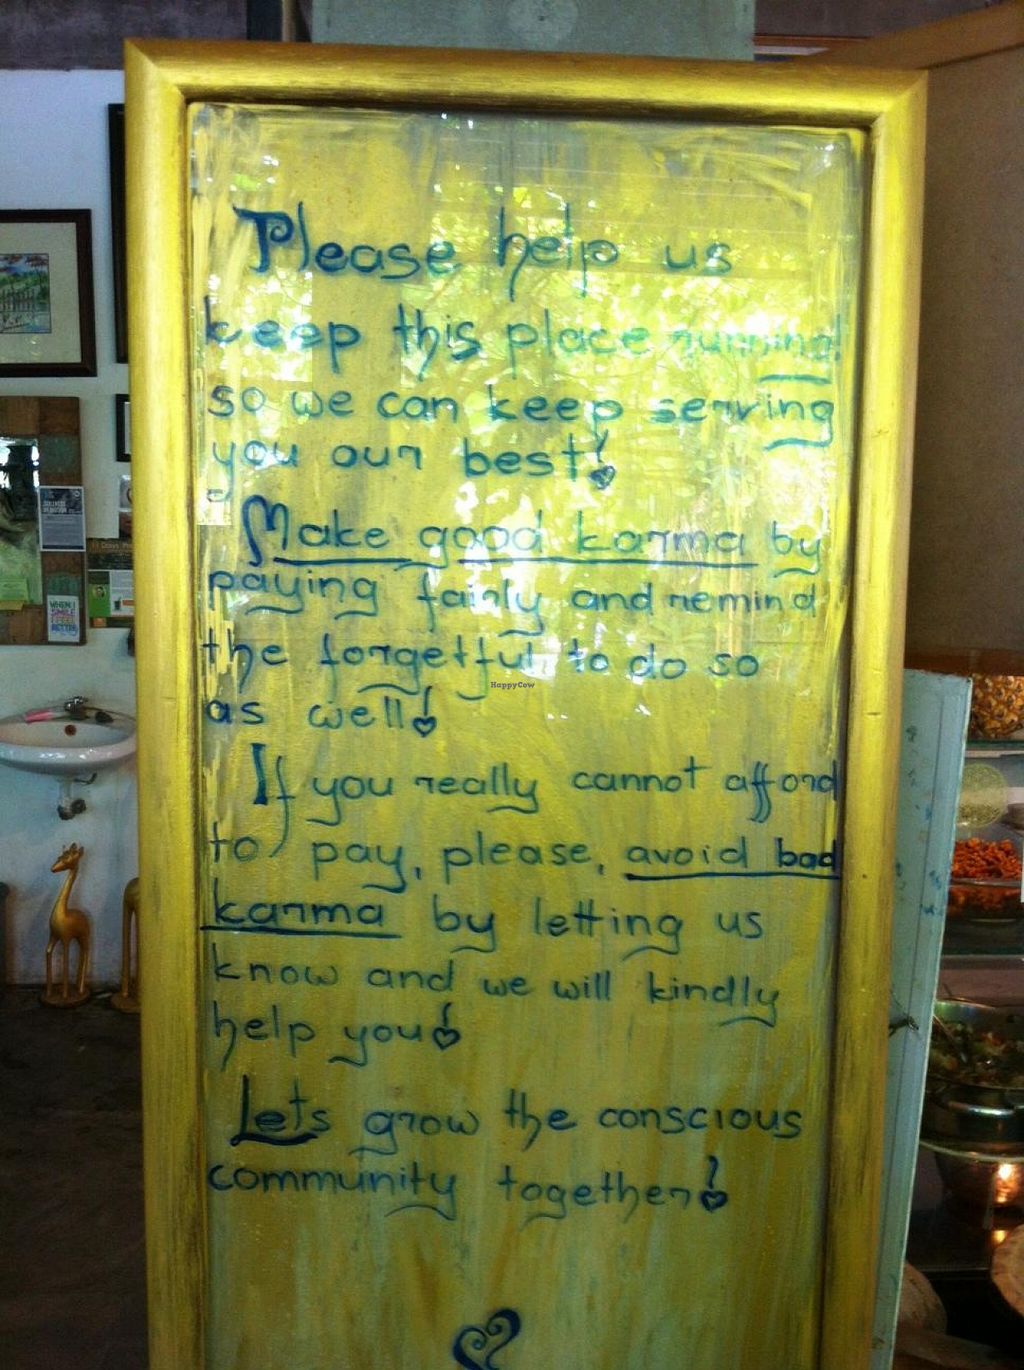 Please help us
keep this place running!
so we can keep serving
you our best!
Make good karma by
paying fairly and remind
the forgetful to do so
as well!
HappyCow
If you really cannot afford
to pay, please, avoid bad
karma by letting us
know and we will kindly
help you!
Lets grow the conscious
community together!
WHEN I
SMILE
I FEEL
BETTER